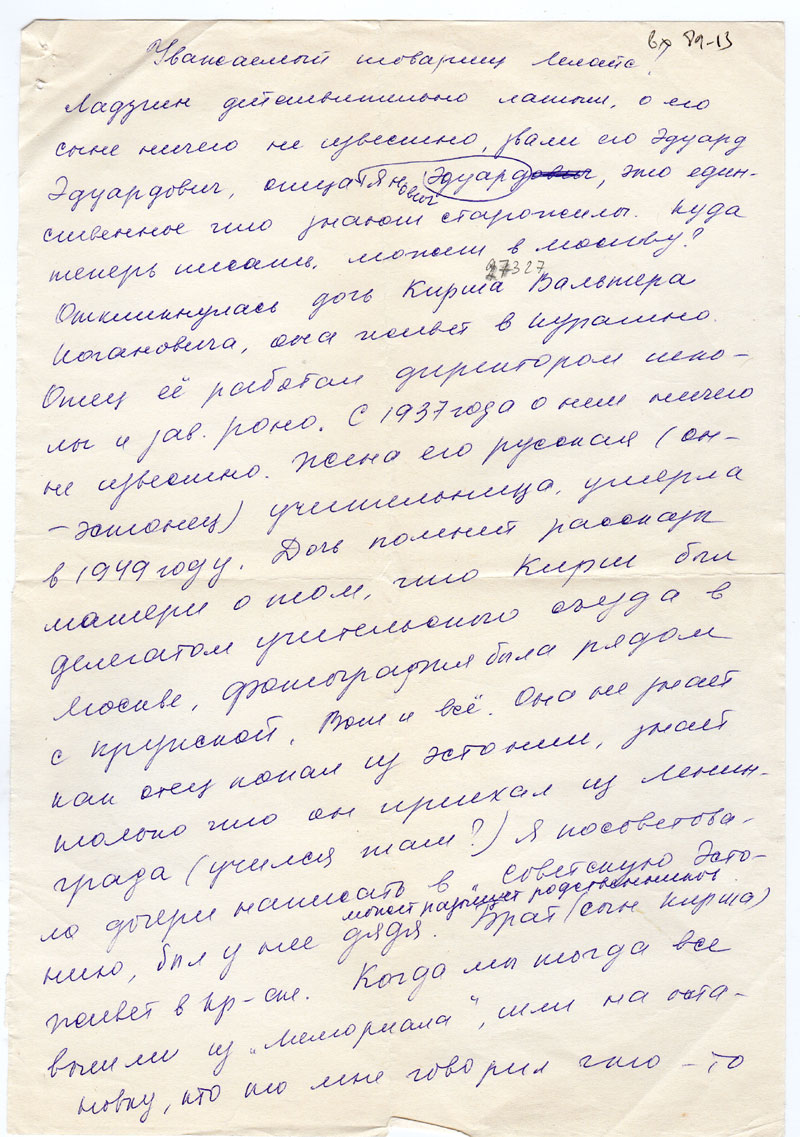 вх 89-13
Уважаемый товарищ !
Ладузин действительно латыш, о его
сыне ничего не известно, звали его Эдуард
Эдуардович, отца Янович Эдуард, это един-
ственное что знают старожилы. Куда
теперь писать, может в Москву?
27327
Откликнулась дочь Кирша Вальтера
Иогановича, она живет в Курагино.
Отец её работал директором шко-
лы и зав. роно. С 1937 года о нем ничего
не известно. Жена его русская (он-
-эстонец) учительница, умерла
в 1949 году. Дочь помнит рассказы
матери о том, что Кирш был
делегатом учительского съезда в
Москве, фотография была рядом
с Крупской. Вот и всё. Она не знает
как отец попал из Эстонии, знает
только что он приехал из Ленин-
града (учился там?) Я посоветова-
ла дочери написать в Советскую Эсто-
может разыщет родственников
нию, был у нее дядя. Брат (сын Кирша)
живет в Кр-ске. Когда мы тогда все
вышли из „Мемориала", шли на оста-
новку, кто то мне говорил что-то